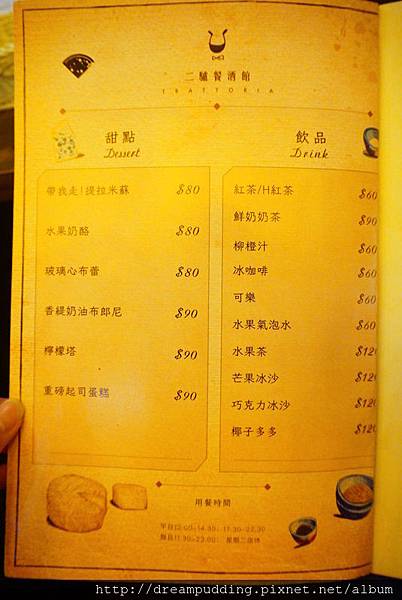 二驢餐酒館
TRATTORIA
甜點
Dessert
帶我走!提拉米蘇 $80
水果奶酪 $80
玻璃心布蕾 $80
香緹奶油布郎尼 $90
檸檬塔 $90
重磅起司蛋糕 $90
飲品
Drink
紅茶/H紅茶 $60
鮮奶奶茶 $90
柳橙汁 $60
冰咖啡 $60
可樂 $60
水果氣泡水 $60
水果茶 $120
芒果冰沙 $120
巧克力冰沙 $120
椰子多多 $120
用餐時間
平日12:00-14:30; 17:30-22:30
假日11:30-23:00; 星期二店休
http://dreampudding.pixnet.net/album